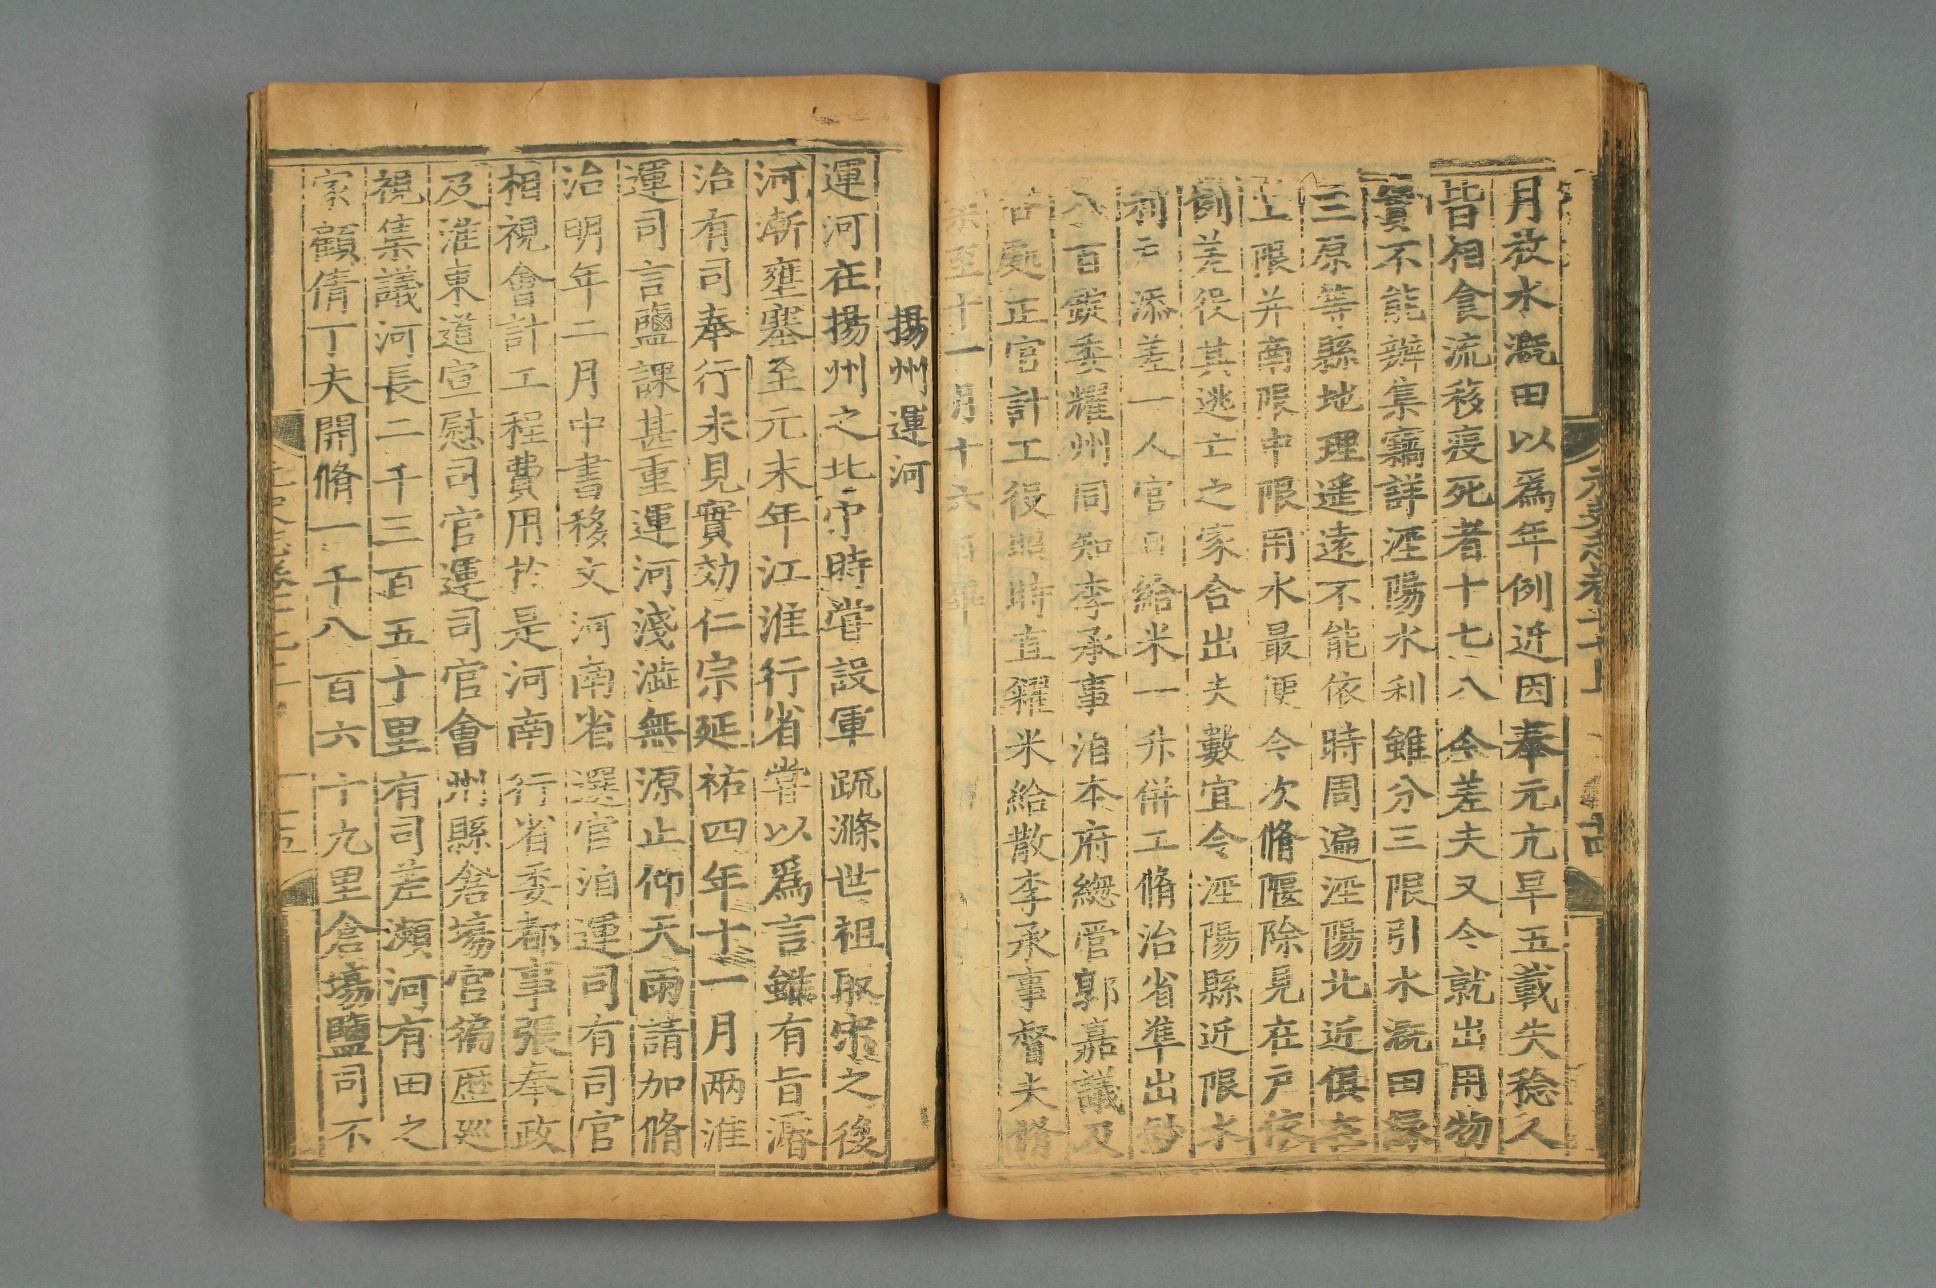 月放水漑田以爲年例近因奉元亢旱五載失稔人
皆相食流移疫死者十七八今差夫又令就出用物
實不能辦集竊詳涇陽水利雖分三限引水漑田緣
三原等縣地理遥遠不能依時周遍涇陽北近俱在
上限并南限中限用水最便今次脩堰除見在戶依
例差役其逃亡之家合出夫數宜令涇陽縣近限水
利戶添差一人官日給米一升併工脩治省準出鈔
八百錠委耀州同知李承事洎本府總管郭嘉議及
各處正官計工役照時直糴米給散李承事督夫脩
築至十一月十六日
揚州運河
運河在揚州之北宋時嘗設軍疏滌世祖取宋之後
河漸壅塞至元末年江淮行省嘗以爲言雖有旨濬
治有司奉行未見實効仁宗延祐四年十一月兩淮
運司言鹽課甚重運河淺澁無源止仰天雨請加脩
治明年二月中書移文河南省選官洎運司有司官
相視會計工程費用於是河南行省委都事張奉政
及淮東道宣慰司官運司官會州縣倉塲官徧歷巡
視集議河長二千三百五十里有司差瀕河有田之
家顧倩丁夫開脩一千八百六十九里倉塲鹽司不
十五